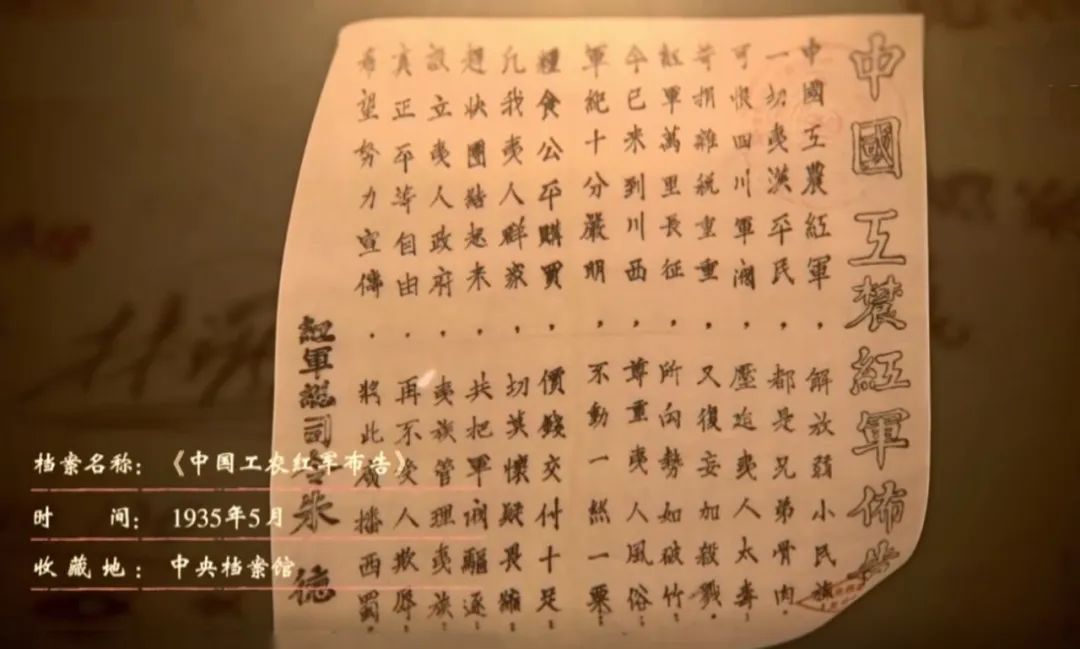 中國工農紅軍佈告
中國工農紅軍，解放弱小民族.
一切夷漢平民，都是兄弟骨肉.
可恨四川軍閥，壓迫夷人太毒.
苛捐雜稅重重，又復妄加殺戮.
紅軍萬里長征，所向勢如破竹.
今已來到川西，尊重夷人風俗.
軍紀十分嚴明，不動一絲一粟.
糧食公平購買，價錢交付十足.
凡我夷人群眾，切莫懷疑畏縮.
趕快團結起來，共把軍閥驅逐.
設立夷人政府，夷族管理夷族.
真正平等自由，再不受人欺辱.
希望努力宣傳，將此廣播西蜀.
紅軍總司令朱德
档案名称：《中国工农红军布告》
时间：1935年5月
收藏地：中央档案馆